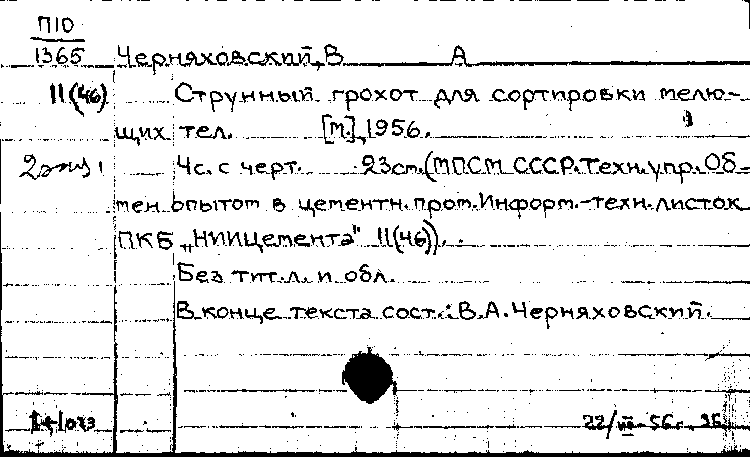 П10
1365 Черняховский, В А
11(46) Струнный грохот для сортировки мелю-
щих тел. [М.], 1956.
2 экз. 4с. с черт. 23см. (МПСМ СССР. Техн. упр. Об-
мен опытом в цементн. пром. Информ.-техн. листок
ПКБ „НИИЦемента" 11(46)).
Без тит. л. и обл.
В конце текста сост.: В.А. Черняховский.
22/VII-56г.